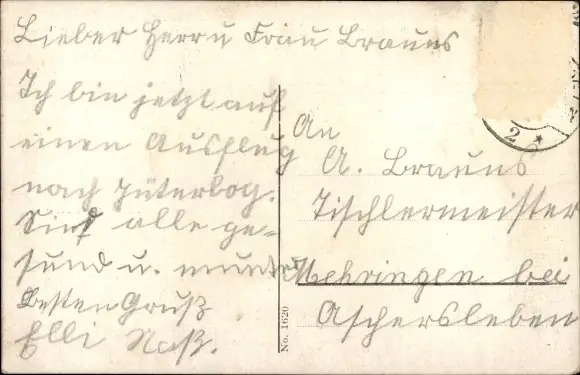 Lieber Herr u Frau Brauns
Ich bin jetzt auf
einen Ausflug
nach Jüterbog.
Sind alle ge-
sund u. munter
Besten Gruß
Elli Naß.
An
A. Brauns
Tischlermeister
Mehringen bei
Aschersleben
No. 1620